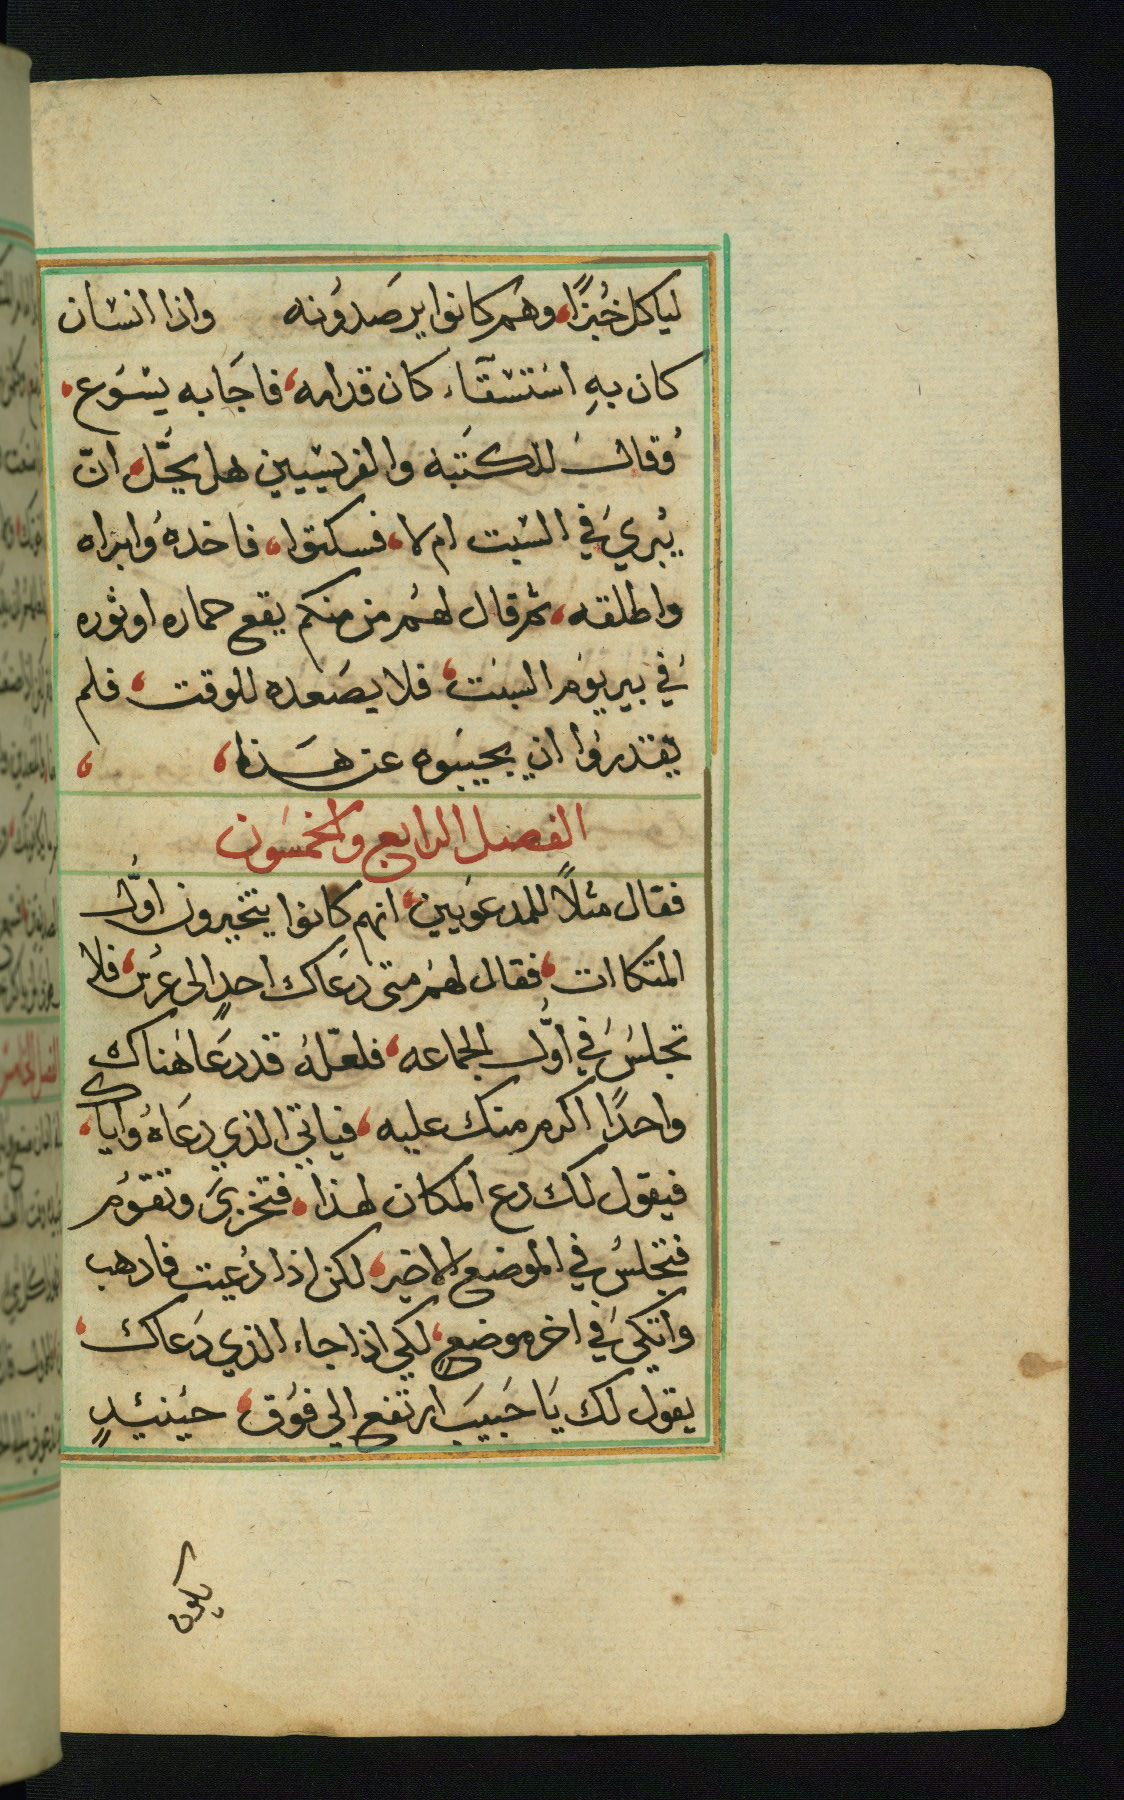 لياكل خُبزًا، وهم كانوا يرصَدوُنه واذا انسان
كان بهِ استسقآء كان قدامه، فاجَابه يسُوَع،
وُقال للكتَبة والفريسيين هل يحَّل، ان
يُبري في السَبت ام لا، فسكتوا، فاخدهُ وابراه
واطلقه، ثم قال لهُم من منكم يقع حماره او ثوره
في بير يوَم السَبت، فلا يصَعده للوقت، فلم
يقدروُا ان يجيبَوه عن هَذا، ،
الفصل الرابع والخمسَون
فقال مثلًا للمدعوَيين، انهم كانوا يتخيرون اوَّل
المتكاات، فقال لهُم متى دعَاك احدٍ الى عُرس، فلا
تجلسُ في اوَّل الجماعه، فلعَلهُ قد دعَا هُناك
واحدًا اكرم منك عليه، فياتي الذي دعَاهُ واياك،
فيقول لك دع المكان لهذا، فتخزيَ وتقوُم
فتجلسُ في الموضع الاخير، لكن اذا دُعيت فادهب
واتكيَ في اخر موضعٍ، لكي اذا جاء الذي دَعاك،
يقول لك يَا حَبيبَ ارتفع الي فوَق، حيُنيئدٍ
يكون